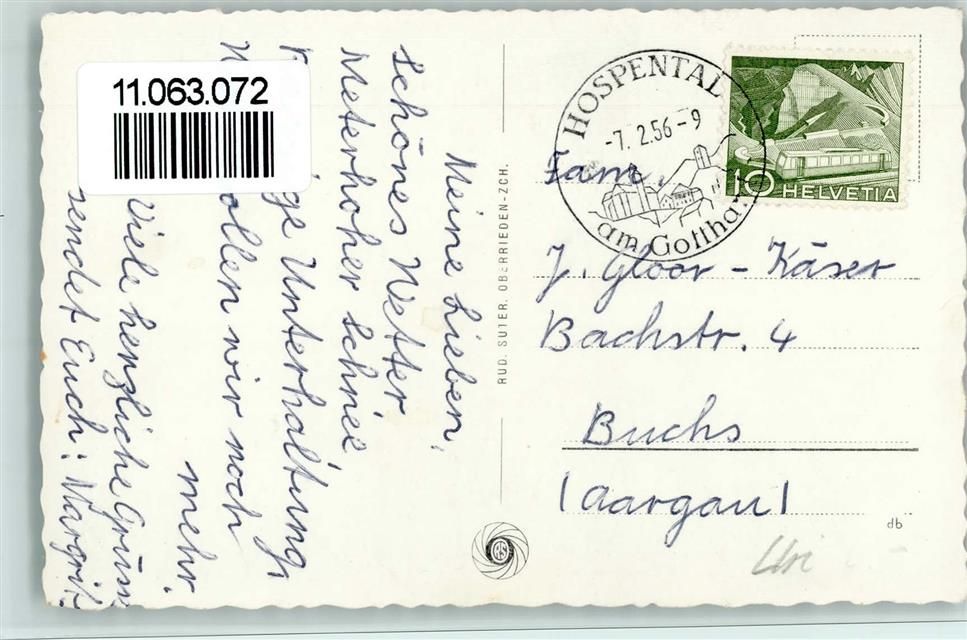 11.063.072
Meine Lieben!
Schönes Wetter
Meterhoher schnee
Unterhaltung,
wir noch
mehr.
Viele herzliche Grüsse
sendet Euch: Margrit
RUD. SUTER. OBERRIEDEN-ZCH.
RS
HOSPENTAL
-7.2.56-9
am Gotthar
10 HELVETIA
Fam.
J. Gloor - Käser
Bachstr. 4
Buchs
(Aargau)
db
Uri